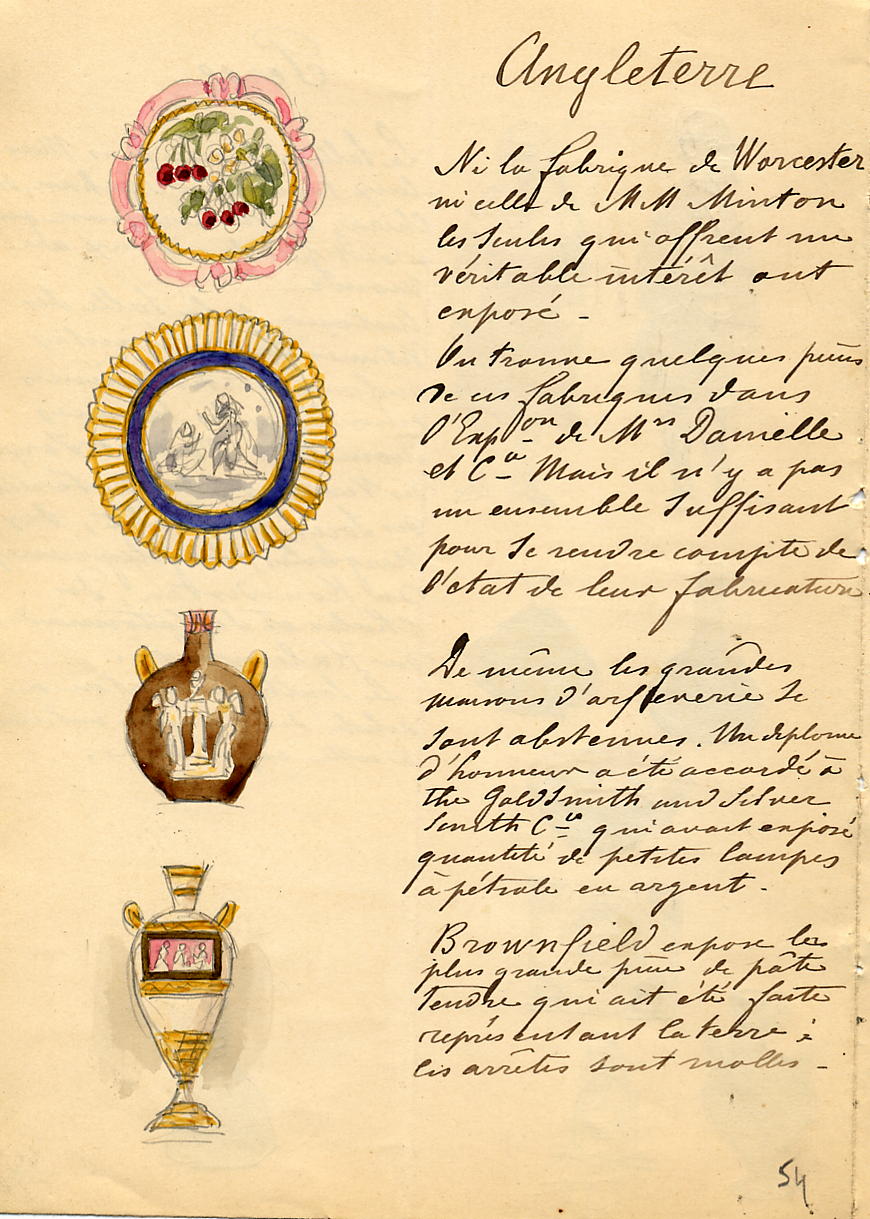 Angleterre
Ni la fabrique de Worcester
ni celle de MM Minton
les seules qui offrent un
véritable intérêt ont
exposé -
On trouve quelques pièces
de ces fabriques dans
l'Expon de Mrs Danielle
et Cie Mais il n'y a pas
un ensemble suffisant
pour se rendre compte de
l'état de leur fabrication
De même les grandes
maisons d'orfèvrerie se
sont abstenues. Un diplome
d'honneur a été accordé à
the GoldSmith and Silver
Smith Cie qui avait exposé
quantité de petites lampes
à pétrole en argent.
Brownfield expose les
plus grande pièce de pâte
tendre qui ait été faite
représentant la terre ;
les arrêtes sont molles -
54